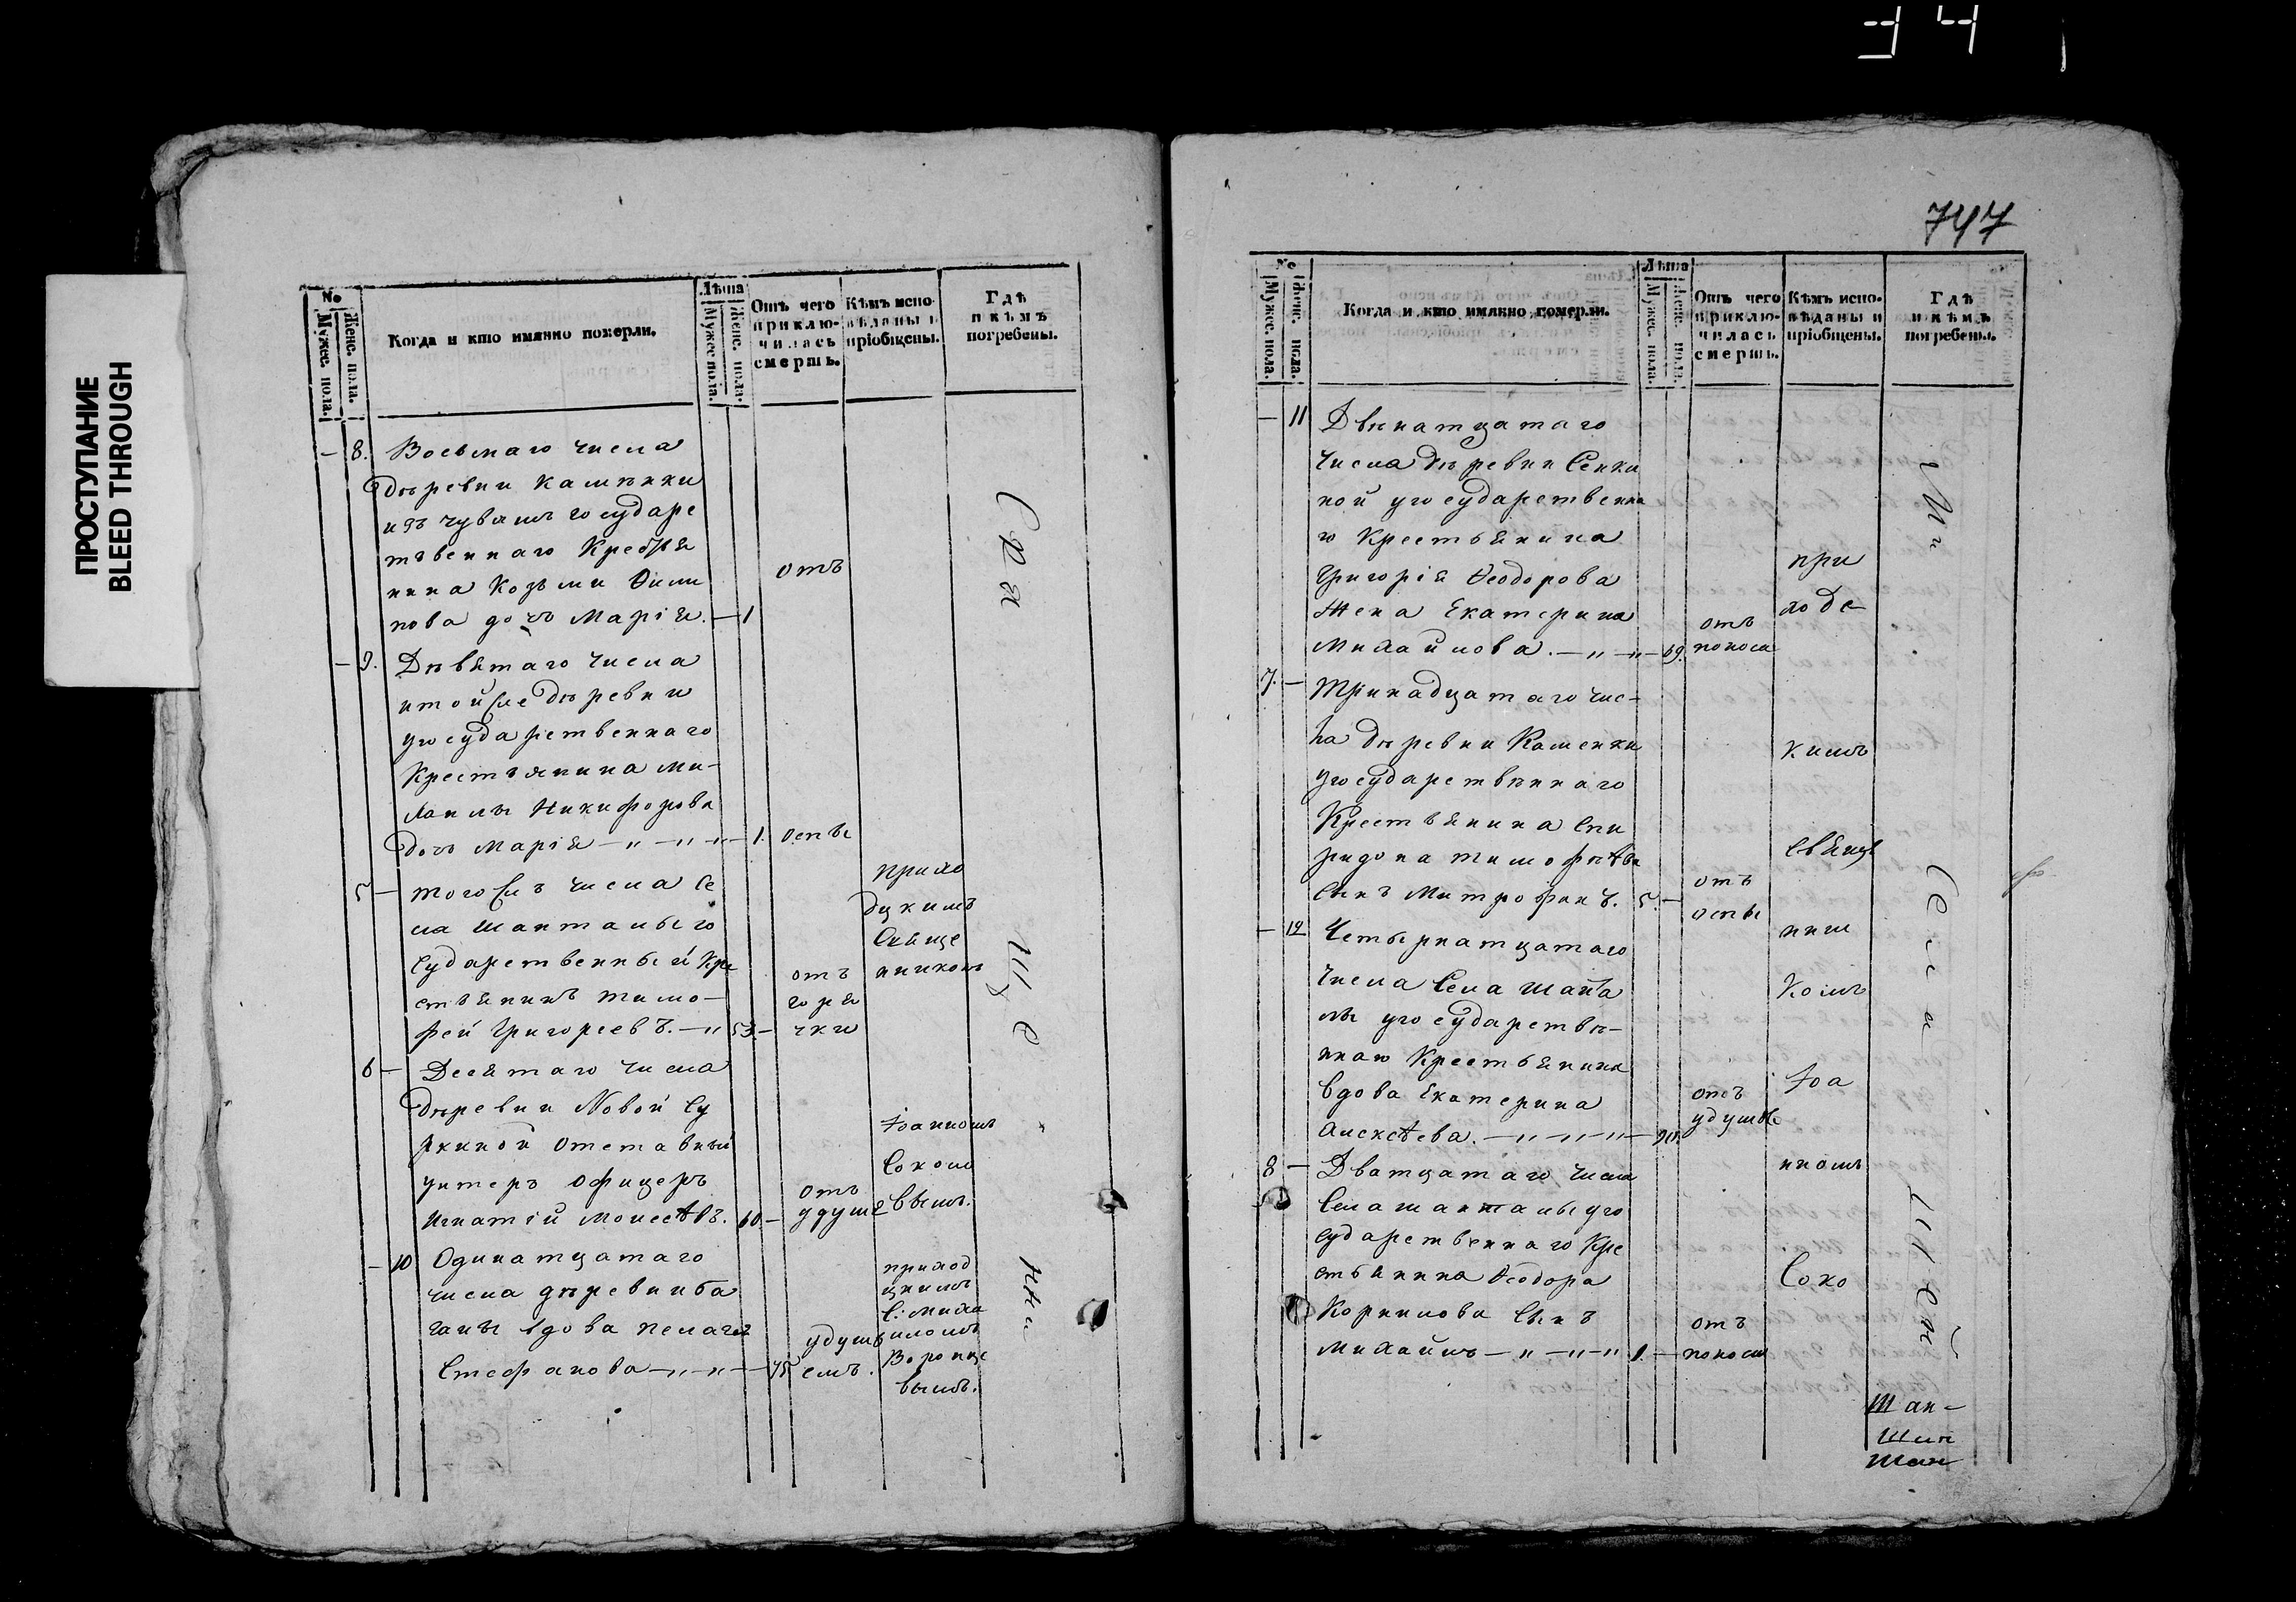 ПРОСТУПАНИЕ
BLEED THROUGH
747
№
Мужес. пола.
Женс. пола.
Когда и кто имянно померли.
Лѣта
Мужес. пола.
Женс. пола.
Отъ чего
приклю-
чилась
смерть.
Кѣмъ испо-
вѣданы и
пріобщены.
Гдѣ
и кѣмъ
погребены.
— 8. Восьмаго числа
дѣревни камѣнки
изъ чувашъ государс
твеннаго Крестья
нина Козьмы
пова дочь Марія. — 1
отъ
— 9. Дѣвятаго числа
итойже дѣревни
угосударственнаго
Крестьянина Ми-
хаилы Никифорова
дочь Марія — " — " — " — 1. оспы
5 — тогожъ числа Се
ла шанталы го
сударственный Кре
стьянинъ тимо-
фей Григорьевъ. — " 53. —
отъ
горя
чки
прихо
дцкимъ
Свяще
нникомъ
6 — Десятаго числа
дѣревни Новой Су
ркиной отставный
унтеръ офицеръ
Игнатій Моисеѣвъ. 60. —
отъ
удушъ
Іоанномъ
Соколо
вымъ.
— 10 Одинатцатаго
числа дѣревни ба
ганы вдова пелагея
Стефанова — " — " — 75
удушь
емъ.
приход
цкимъ
С: миха
иломъ
Воронце
вымъ.
Свя
ще
нни
№
Мужес. пола.
Женс. пола.
Когда и кто имянно померли.
Лѣта
Мужес. пола.
Женс. пола.
Отъ чего
приклю-
чилась
смерть.
Кѣмъ испо-
вѣданы и
пріобщены.
Гдѣ
и кѣмъ
погребены.
— 11 Двѣнатцатаго
числа дѣревни Сенки
ной угосударственна
го Крестьянина
Григорія Ѳеодорова
жена Екатерина
Михайлова. — " — " — 69.
отъ
поноса
7. — Тринадцатаго чис-
ла дѣревни Каменки
угосударствѣннаго
Крестьянина Спи
ридона тимофѣѣва
сынъ Митрофанъ. 5. —
отъ
оспы
— 12 Четырнатцатаго
числа Села шанта
лы угосударствѣ-
ннаго Крестьянина
вдова Екатерина
Алексѣева. — " — " — " — 90.
отъ
удушье
8 — Дватцатаго числа
Села шанталы уго
сударственнаго Кре
стьянина Ѳеодора
Корнилова Сынъ
Михайлъ — " — " — " 1. —
отъ
поносъ
при
ходс
кимъ
свяще
нни
комъ
Іоа
нномъ
Соко
Села
Шан-